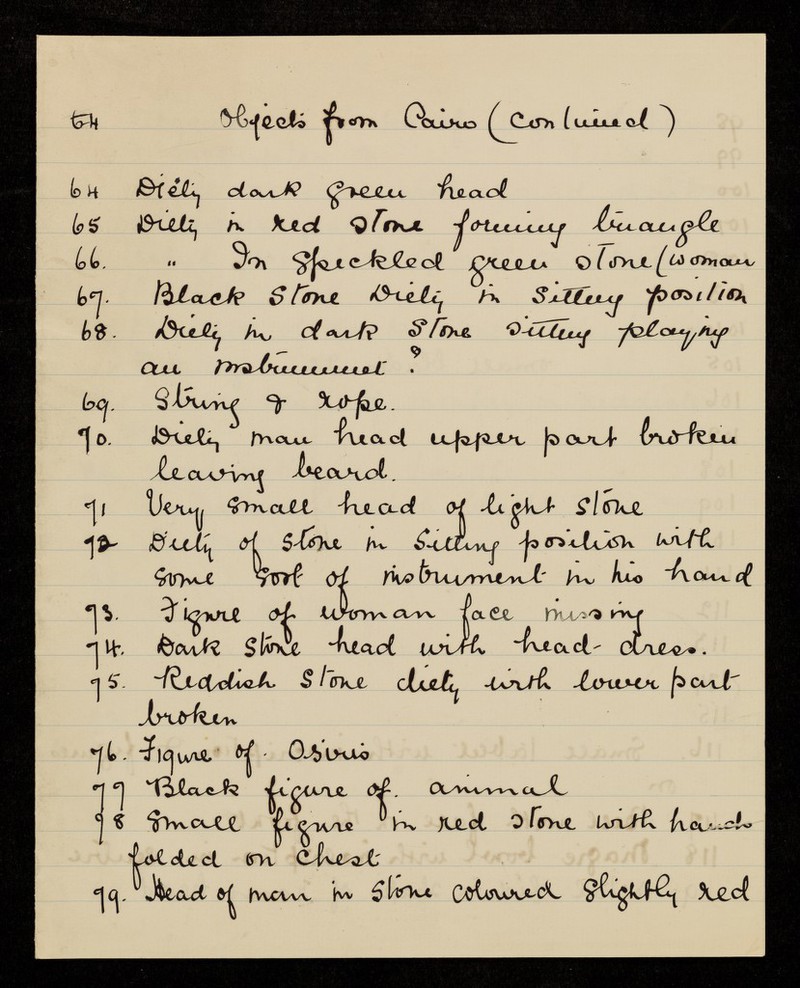 64 Objects from Cairo (Continued)
64 Diety dark green head
65 Diety in red Stone forming triangle
66. " In Speckled green Stone (woman
67. Black Stone Diety in Sitting position
68. Diety in dark Stone Sitting playing
an instrument?
69. String & rope.
70. Diety man head upper part broken
leaving beard.
71 Very Small head of light Stone
72 Diety of Stone in Sitting position with
Some Sort of instrument in his hand
73. Figure of woman face missing
74. Dark Stone head with head-dress.
75. Reddish Stone diety with lower part
broken
76. Figure of. Osiris
77 Black figure of. animal
78 Small figure in red Stone with hands
folded on Chest
79. Head of man in Stone Coloured Slightly red